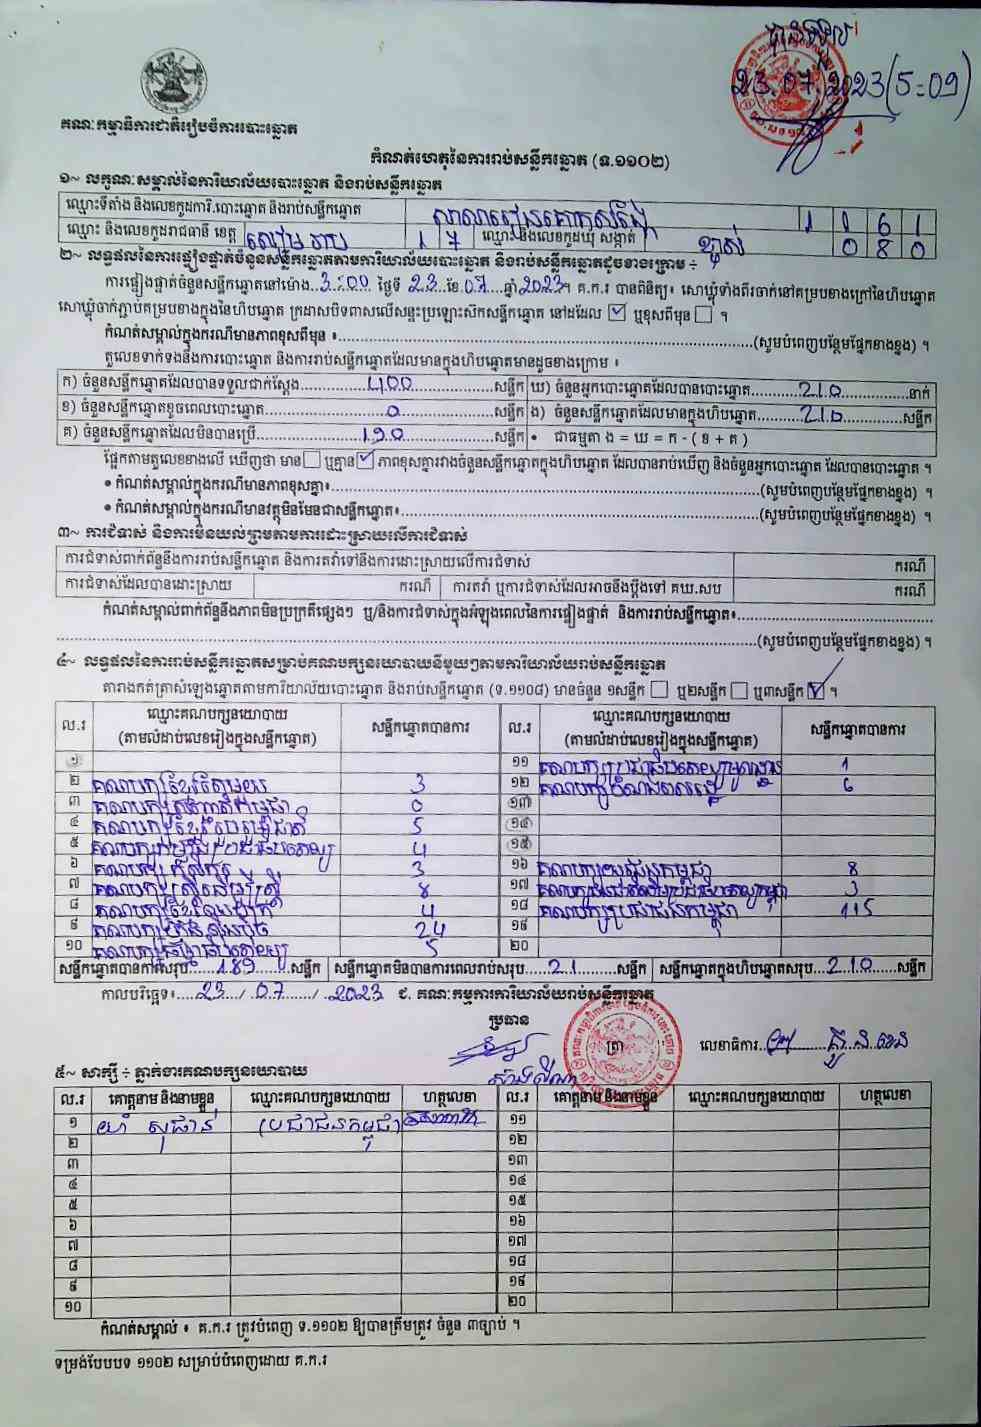 បានទទួល
23.07.2023(5:09)
គណៈកម្មាធិការជាតិរៀបចំការបោះឆ្នោត
កំណត់ហេតុនៃការរាប់សន្លឹកឆ្នោត (ទ.១១០២)
១~ លក្ខណៈសម្គាល់នៃការិយាល័យបោះឆ្នោត និងរាប់សន្លឹកឆ្នោត
ឈ្មោះទីតាំង និងលេខកូដការិ.បោះឆ្នោត និងរាប់សន្លឹកឆ្នោត 1 1 6 1
ឈ្មោះ និងលេខកូដរាជធានី ខេត្ត សៀមរាប 1 7 ឈ្មោះ និងលេខកូដឃុំ សង្កាត់ ខ្នាស់ 0 8 0
២~ លទ្ធផលនៃការផ្ទៀងផ្ទាត់ចំនួនសន្លឹកឆ្នោតតាមការិយាល័យបោះឆ្នោត និងរាប់សន្លឹកឆ្នោតដូចខាងក្រោម ÷
ការផ្ទៀងផ្ទាត់ចំនួនសន្លឹកឆ្នោតនៅម៉ោង..3:00 ថ្ងៃទី 23 ខែ 07 ឆ្នាំ 2023។ គ.ក.រ បានពិនិត្យ៖ សោឃ្លុំទាំងពីរចាក់នៅគម្របខាងក្រៅនៃហិបឆ្នោត
សោឃ្លុំចាក់ភ្ជាប់គម្របខាងក្នុងនៃហិបឆ្នោត ក្រដាសបិទពាសលើសន្ទះប្រឡោះស៊កសន្លឹកឆ្នោត នៅដដែល ☑ ឬខុសពីមុន ☐ ។
កំណត់សម្គាល់ក្នុងករណីមានភាពខុសពីមុន ៖ (សូមបំពេញបន្ថែមផ្នែកខាងខ្នង) ។
តួលេខទាក់ទងនឹងការបោះឆ្នោត និងការរាប់សន្លឹកឆ្នោតដែលមានក្នុងហិបឆ្នោតមានដូចខាងក្រោម ៖
ក) ចំនួនសន្លឹកឆ្នោតដែលបានទទួលជាក់ស្តែង 400 សន្លឹក ឃ) ចំនួនអ្នកបោះឆ្នោតដែលបានបោះឆ្នោត 210 នាក់
ខ) ចំនួនសន្លឹកឆ្នោតខូចពេលបោះឆ្នោត 0 សន្លឹក ង) ចំនួនសន្លឹកឆ្នោតដែលមានក្នុងហិបឆ្នោត 210 សន្លឹក
គ) ចំនួនសន្លឹកឆ្នោតដែលមិនបានប្រើ 190 សន្លឹក • ជាធម្មតា ង = ឃ = ក - ( ខ + គ )
ផ្អែកតាមតួលេខខាងលើ ឃើញថា មាន ☐ ឬគ្មាន ☑ ភាពខុសគ្នារវាងចំនួនសន្លឹកឆ្នោតក្នុងហិបឆ្នោត ដែលបានរាប់ឃើញ និងចំនួនអ្នកបោះឆ្នោត ដែលបានបោះឆ្នោត ។
• កំណត់សម្គាល់ក្នុងករណីមានភាពខុសគ្នា៖ (សូមបំពេញបន្ថែមផ្នែកខាងខ្នង) ។
• កំណត់សម្គាល់ក្នុងករណីមានវត្ថុមិនមែនជាសន្លឹកឆ្នោត៖ (សូមបំពេញបន្ថែមផ្នែកខាងខ្នង) ។
៣~ ការជំទាស់ និងការមិនយល់ព្រមតាមការដោះស្រាយលើការជំទាស់
ការជំទាស់ពាក់ព័ន្ធនឹងការរាប់សន្លឹកឆ្នោត និងការតវ៉ាទៅនឹងការដោះស្រាយលើការជំទាស់ ករណី
ការជំទាស់ដែលបានដោះស្រាយ ករណី ការតវ៉ា ឬការជំទាស់ដែលអាចនឹងប្តឹងទៅ គឃ.សប ករណី
កំណត់សម្គាល់ពាក់ព័ន្ធនឹងភាពមិនប្រក្រតីផ្សេងៗ ឬ/និងការជំទាស់ក្នុងអំឡុងពេលនៃការផ្ទៀងផ្ទាត់ និងការរាប់សន្លឹកឆ្នោត៖
(សូមបំពេញបន្ថែមផ្នែកខាងខ្នង) ។
៤~ លទ្ធផលនៃការរាប់សន្លឹកឆ្នោតសម្រាប់គណបក្សនយោបាយនីមួយៗតាមការិយាល័យរាប់សន្លឹកឆ្នោត
តារាងកត់ត្រាសំឡេងឆ្នោតតាមការិយាល័យបោះឆ្នោត និងរាប់សន្លឹកឆ្នោត (ទ.១១០៨) មានចំនួន ១សន្លឹក ☐ ឬ២សន្លឹក ☐ ឬ៣សន្លឹក ☑ ។
ល.រ ឈ្មោះគណបក្សនយោបាយ (តាមលំដាប់លេខរៀងក្នុងសន្លឹកឆ្នោត) សន្លឹកឆ្នោតបានការ ល.រ ឈ្មោះគណបក្សនយោបាយ (តាមលំដាប់លេខរៀងក្នុងសន្លឹកឆ្នោត) សន្លឹកឆ្នោតបានការ
១ ១១ 1
២ គណបក្សខ្មែរតែមួយ 3 ១២ 6
៣ 0 ១៣
៤ គណបក្សខ្មែររួបរួមជាតិ 5 ១៤
៥ 4 ១៥
៦ គណបក្សកសិករ 3 ១៦ គណបក្សយុវជនកម្ពុជា 8
៧ គណបក្សស្ត្រីដើម្បីស្ត្រី 8 ១៧ 3
៨ 4 ១៨ គណបក្សប្រជាជនកម្ពុជា 115
៩ គណបក្សហ្វ៊ុនស៊ិនប៉ិច 24 ១៩
១០ 5 ២០
សន្លឹកឆ្នោតបានការសរុប 189 សន្លឹក សន្លឹកឆ្នោតមិនបានការពេលរាប់សរុប 21 សន្លឹក សន្លឹកឆ្នោតក្នុងហិបឆ្នោតសរុប 210 សន្លឹក
កាលបរិច្ឆេទ៖ 23 / 07 / 2023 ជ. គណៈកម្មការការិយាល័យរាប់សន្លឹកឆ្នោត
ប្រធាន
ត្រា លេខាធិការ
៥~ សាក្សី ÷ ភ្នាក់ងារគណបក្សនយោបាយ
ល.រ គោត្តនាម និងនាមខ្លួន ឈ្មោះគណបក្សនយោបាយ ហត្ថលេខា ល.រ គោត្តនាម និងនាមខ្លួន ឈ្មោះគណបក្សនយោបាយ ហត្ថលេខា
១ ប្រជាជនកម្ពុជា ១១
២ ១២
៣ ១៣
៤ ១៤
៥ ១៥
៦ ១៦
៧ ១៧
៨ ១៨
៩ ១៩
១០ ២០
កំណត់សម្គាល់ ៖ គ.ក.រ ត្រូវបំពេញ ទ.១១០២ ឱ្យបានត្រឹមត្រូវ ចំនួន ៣ច្បាប់ ។
ទម្រង់បែបបទ ១១០២ សម្រាប់បំពេញដោយ គ.ក.រ